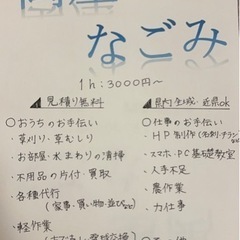 なごみ
1h:3000円〜
見積り無料
県内全域・近県ok
○おうちのお手伝い
・草刈り・草むしり
・お部屋・水まわりの清掃
・不用品の片付・買取
・各種代行
(家事・買い物・並びなど)
・軽作業
○仕事のお手伝い
・HP制作(名刺・チラシなど)
・スマホ・PC基礎教室
・人手不足
・農作業
・力仕事